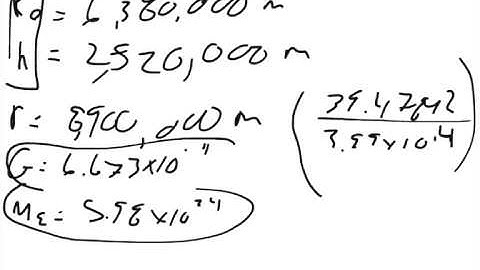 = 6,380,000 m
h = 2,520,000 m
r = 8,900,000 m
G = 6.673x10⁻¹¹
M_E = 5.98x10²⁴
39.47842
3.99x10^14